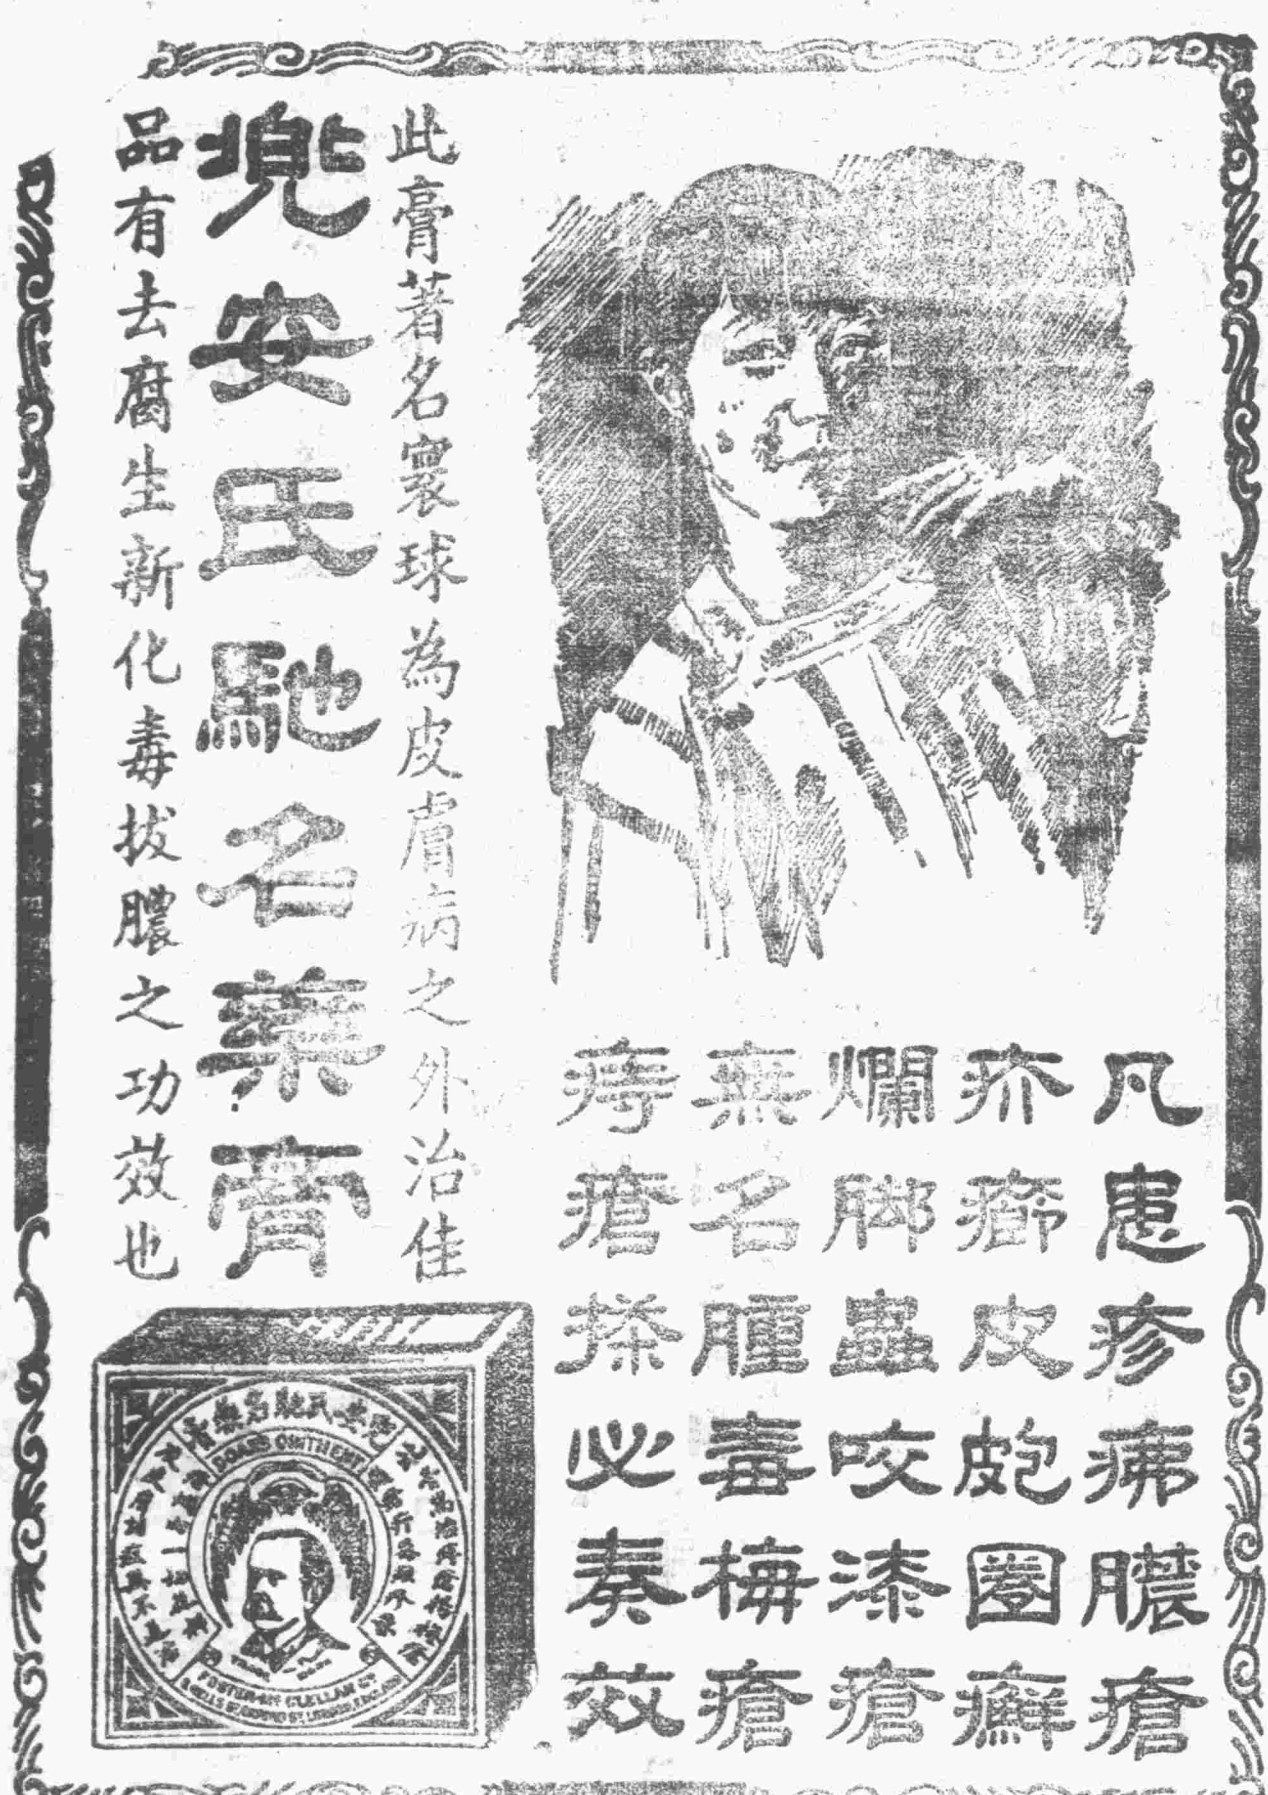 凡患疹疿膿瘡
疥癤皮皰圈癬
爛脚蟲咬漆瘡
無名腫毒梅瘡
痔瘡搽必奏效
此膏著名寰球為皮膚病之外治佳
兜安氏馳名藥膏
品有去腐生新化毒拔膿之功效也
兜安氏馳名藥膏
DOAN'S OINTMENT
FOSTER-McCLELLAN Co